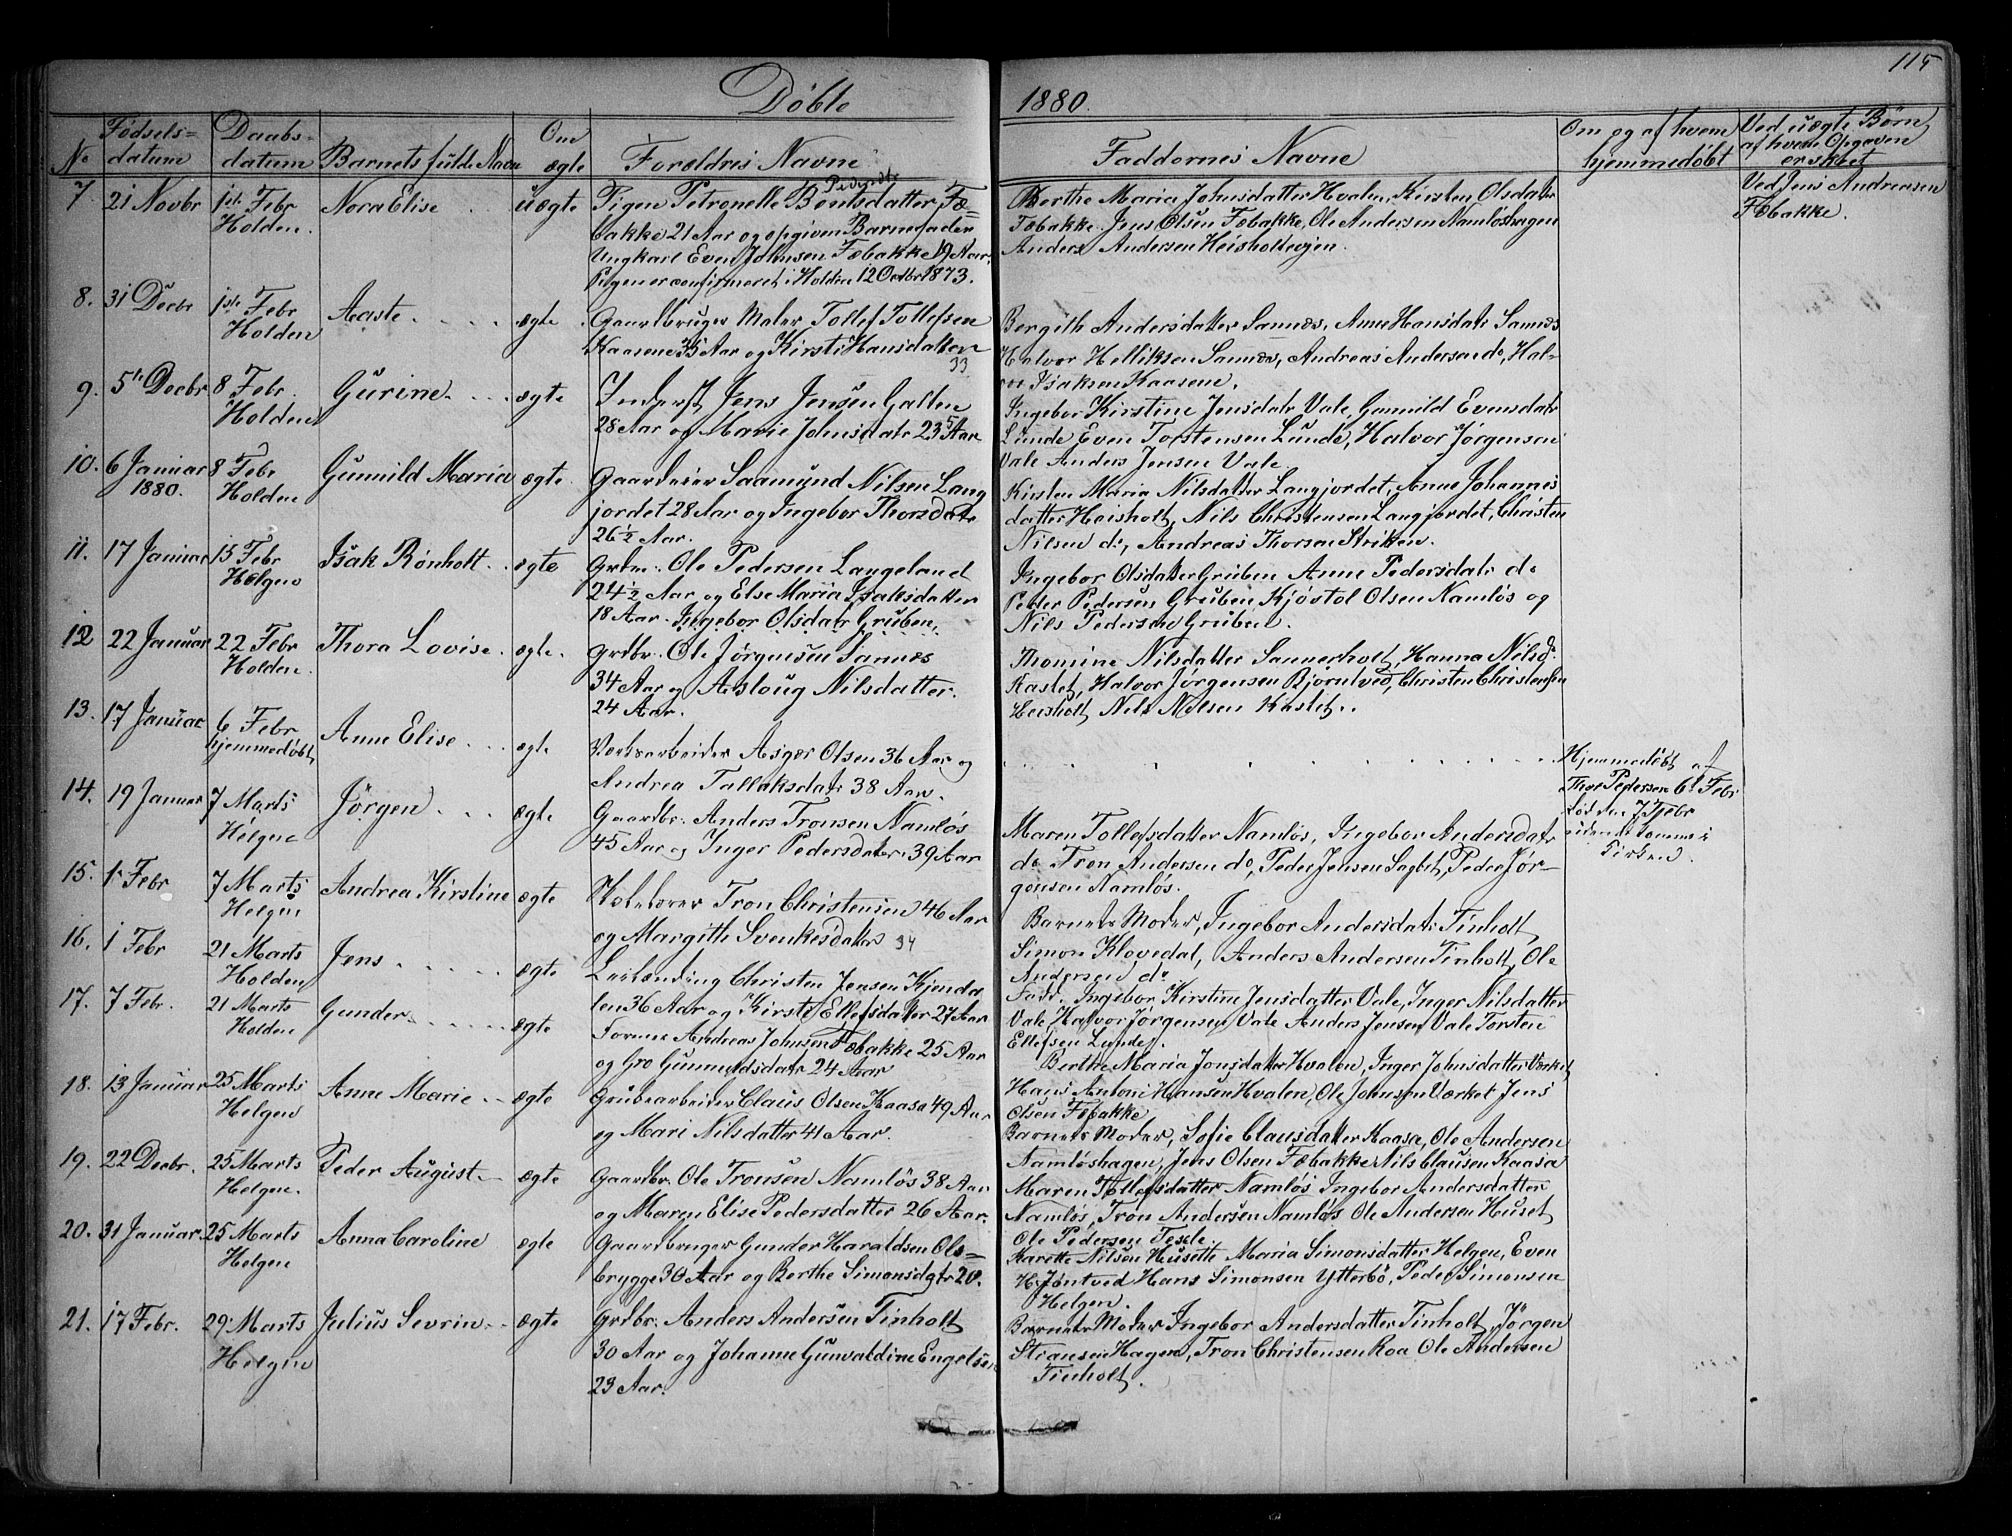 115
Døbte 1880.
No
Fødsels=
datum
Daabs=
datum
Barnets fulde Navn
Om
ægte
Forældres Navne
Faddernes Navne
Om og af hvem
hjemmedøbt
Ved uægte Børn
af hvem Opgaven
er skeet
7. 21 Novbr 1ste Febr
Holden.
Nora Elise
uægte
Pigen Petronelle Bentsdatter Fæ=
bakke 21 Aar og opgiven Barnefader
Ungkarl Even Johnsen Fæbakke 19 Aar.
Pigen er confirmeret i Holden 12 Octbr 1873.
Berthe Maria Johnsdatter Hvalen, Kirsten Olsdatr
Fæbakke. Jens Olsen Fæbakke, Ole Andersen Namløshagen
Anders Andersen Heisholteien.
Ved Jens Andreasen
Fæbakke.
8. 31 Decbr 1ste Febr
Holden
Aaste
ægte
Gaardbruger Maler Tollef Tollefsen
Kaasene 35 Aar og Kirsti Hansdatter
33
Bergith Andersdatter Sannes, Anne Hansdatr Sannes
Halvor Helliksen Sannes, Andreas Andersen do, Hal=
vor Isaksen Kaasene.
9. 5te Decbr 8 Febr.
Holden
Gurine
ægte
Inderst Jens Jensen Galten
28 Aar og Marie Johnsdatr 23 Aar
Ingebor Kirstine Jensdatr Vale, Gunnild Evensdatr
Lunde Even Torstensen Lunde, Halvor Jørgensen
Vale Anders Jensen Vale
10. 6 Januar
1880.
8 Febr
Holden
Gunnild Maria
ægte
Gaardeier Saamund Nilsen Lang
jordet 28 Aar og Ingebor Thorsdatr
26 1/2 Aar.
Kirsten Maria Nilsdatter Langjordet, Anne Johannis
datter Heisholt, Nils Christensen Langjordet, Christen
Nilsen do, Andreas Thorsen Strikken.
11. 17 Januar 15 Febr
Helgen
Isak Rønholt
ægte
Grbr. Ole Pedersen Langeland
24 1/2 Aar og Else Maria Isaksdatter
18 Aar. Ingebor Olsdatr Gruben.
Ingebor Olsdatter Gruben Anne Pedersdatr do
Peder Pedersen Gruben, Kjøstol Olsen Namløs og
Nils Pedersen Gruben.
12 22 Januar 22 Febr
Holden.
Thora Lovise
ægte
Grdbr. Ole Jørgensen Sannes
34 Aar og Aslaug Nilsdatter.
24 Aar.
Thomine Nilsdatter Sannerholt, Hanna Nilsd.
Kastet, Halvor Jørgensen Bjørntved, Christen Christensen
Heisholt, Nils Nilsen Kastet.
13. 17 Januar 6 Febr
hjemmedøbt
Anne Elise
ægte
Værksarbeider Asgær Olsen 36 Aar og
Andrea Tallaksdatr 38 Aar.
Hjemmedøbt af
Thor Pedersen 6 Febr
død den 7 Febr
14. 19 Januar 7 Marts
Helgen
Jørgen
ægte
Gaardbr. Anders Tronsen Namløs
45 Aar og Inger Pedersdatr. 39 Aar
Maren Tollefsdatter Namløs, Ingebor Andersdatr
do Tron Andersen do, Peder Jensen Sagbit, Peder Jør=
gensen Namløs.
15. 1 Febr 7 Marts
Helgen
Andrea Kirstine
ægte
Tron Christensen 46 Aar
og Margithe Svenkesdatter 34
Barnets Moder, Ingebor Andersdatr Tinholt,
Simon Kløvedal, Anders Andersen Tinholt, Ole
Andersen do
16. 1 Febr 21 Marts
Holden
Jens
ægte
Leilænding Christen Jensen Kjenda
len 36 Aar og Kirsti Ellefsdatter 27 Aar
Fadd. Ingebor Kirstine Jensdatter Vale, Inger Nilsdatter
Vale Halvor Jørgensen Vale Anders Jensen Vale Torsten
Ellefsen Lunde.
17. 7 Febr. 21 Marts
Holden
Gunder
ægte
Former Andreas Johnsen Fæbakke 25 Aar
og Gro Gunnuldsdatr 24 Aar
Berthe Maria Jonsdatter Hvalen, Inger Johnsdatter Værket,
Hans Anton Hansen Hvalen, Ole Johnsen Værket Jens
Olsen Fæbakke
18. 13 Januar 25 Marts
Helgen
Anne Marie
ægte
Grubearbeider Claus Olsen Kaasa 49 Aar
og Mari Nilsdatter 41 Aar.
Barnets Moder, Sofie Clausdatter Kaasa, Ole Andersen
Namløshagen, Jens Olsen Fæbakke Nils Clausen Kaasa
19. 22 Decbr. 25 Marts
Helgen.
Peder August
ægte
Gaardbr. Ole Tronsen Namløs 38 Aar
og Maren Elise Pedersdatter 26 Aar.
Maren Tollefsdatter Namløs Ingebor Andersdatter
Namløs, Tron Andersen Namløs Ole Andersen Huset
Ole Pedersen
20. 31 Januar. 25 Marts
Helgen
Anna Caroline
ægte
Gaardbruger Gunder Haraldsen Ols=
brygge 30 Aar og Berthe Simonsdatr 20.
Karette Nilsen Husette Maria Simonsdatter Helgen, Even
H. Jøntved Hans Simonsen Ytterbø, Peder Simonsen
Helgen.
21. 17 Febr. 29 Marts
Helgen
Julius Sevrin
ægte
Grdbr. Anders Andersen Tinholt
30 Aar og Johanne Gunvaldine Engelsen
23 Aar.
Barnets Moder Ingebor Andersdatter Tinholt, Jørgen
Stiansen Hagen, Tron Christensen Roa Ole Andersen
Tinholt.